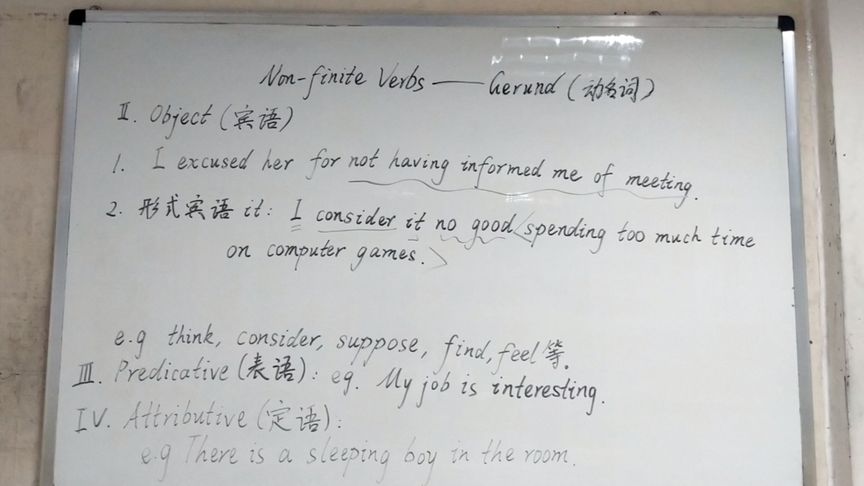 Non-finite Verbs — Gerund (动名词)
II. Object (宾语)
1. I excused her for not having informed me of meeting.
2. 形式宾语 it: I consider it no good <spending too much time
on computer games.>
e.g think, consider, suppose, find, feel 等.
III. Predicative (表语): eg. My job is interesting.
IV. Attributive (定语):
e.g There is a sleeping boy in the room.